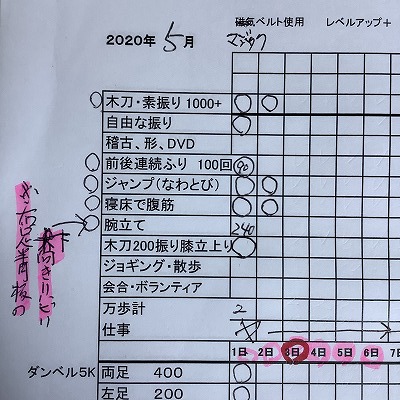 磁気ベルト使用　レベルアップ＋
2020年 5月
マジック
木刀・素振り 1000+
自由な振り
稽古、形、DVD
前後連続ふり 100回 90
ジャンプ(なわとび)
寝床で腹筋
腕立て 240
木刀200振り膝立上り
ジョギング・散歩
会合・ボランティア
万歩計 2
仕事
1日 2日 3日 4日 5日 6日 7日
ダンベル5K 両足 400
左足 200